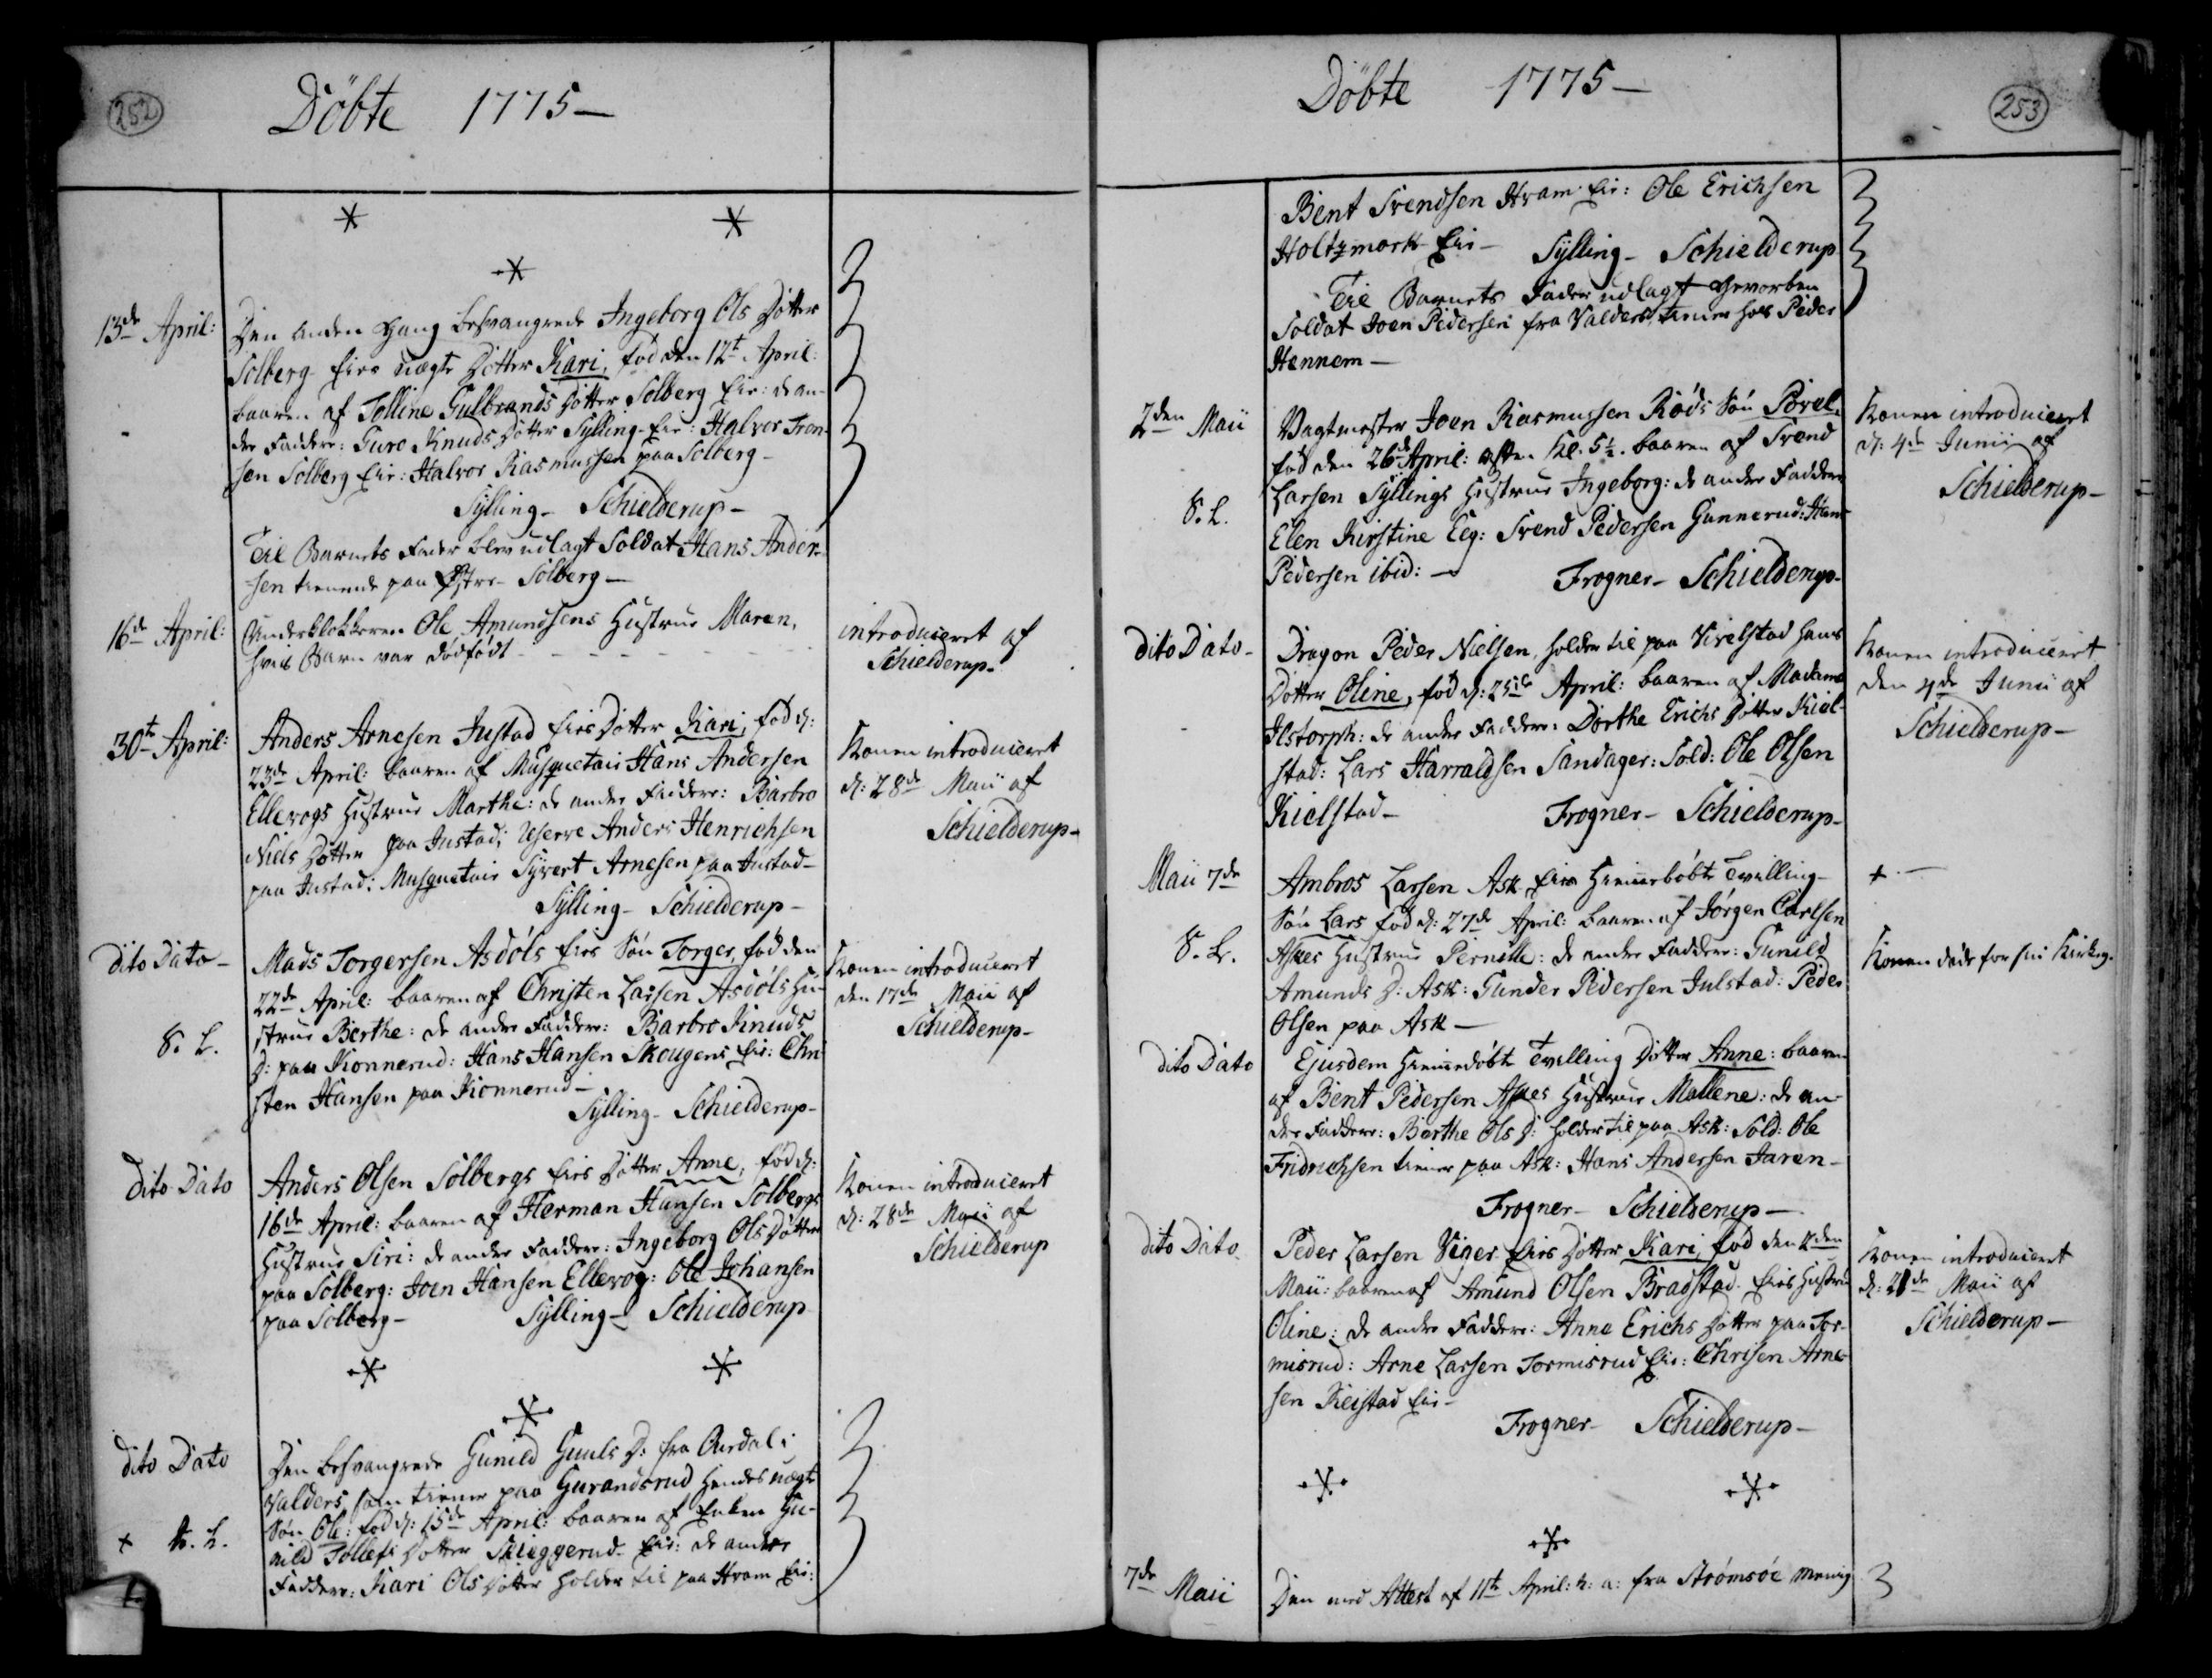 252
Döbte 1775-
13de April:
Den anden Gang besvangrede Ingeborg Ols Dötter
Solberg Eies uægte Dötter Kari, född den 12te April:
baaren af Tolline Gulbrands Dötter Solberg Eie: de an-
dre Faddere: Guro Knuds Dötter Sylling-Eie: Halvor Iven-
sen Solberg Eie: Halvor Rasmussen paa Solberg-
Sylling- Schielderup-
Til Barnets Fader blev udlagt Soldat Hans Ander-
sen tienende paa Østre- Solberg-
16de April:
Underklokkeren Ole Amundsens Hustrue Maren,
hvis Barn var dödfödt
introduceret af
Schielderup-
30te April:
Anders Arnesen Justad Eies Dötter Kari, föd d:
23de April: baaren af Musquetair Hans Andersen
Ellevogs Hustrue Marthe: de andre Faddere: Barbro
Niels Dötter paa Justad: Reserve Anders Henrichsen
paa Justad: Musquetair Syvert Arnesen paa Justad-
Sylling- Schielderup-
Konen introduceret
d: 28de Maii af
Schielderup-
dito Dato-
Mads Torgersen Asdöls Eies Sön Torger, föd den
22de April: baaren af Christen Larsen Asdöls Hu-
strue Berthe: de andre Faddere: Barbro Knuds
D: paa Kionnerud: Hans Hansen Skougens Eie: Chri-
sten Hansen paa Kionnerud-
Sylling- Schielderup-
S. L.
Konen introduceret
den 17de Maii af
Schielderup-
dito Dato
Anders Olsen Solbergs Eies Dötter Anne, föd d:
16de April: baaren af Herman Hansen Solbergs
Hustrue Siri: de andre Faddere: Ingeborg Ols Dötter
paa Solberg: Joen Hansen Ellevog: Ole Johansen
paa Solberg- Sylling- Schielderup
Konen introduceret
d: 28de Maii af
Schielderup
dito Dato
Den besvangrede Gunild Guuls D: fra Aurdal i
Valders, som tiener paa Gurandsrud Hendes uægte
Sön Ole: föd d: 15de April: baaren af Enken Gu-
nild Tollefs Dötter Skieggerud- Eie: de andre
Faddere: Kari Ols Dötter holder til paa Hvam Eie:
253
Döbte 1775-
Bent Svendsen Hvam Eie: Ole Erichsen
Holtzmark Eie- Sylling- Schielderup
Til Barnets Fader udlagt Gevorben
Soldat Joen Pedersen fra Valders, tiener hos Peder
Hennem-
2den Maii
Vagtmester Joen Rasmussen Röds Sön Povel,
föd den 26de April: Aften Kl. 5½. baaren af Svend
Larsen Syllings Hustrue Ingeborg: de andre Faddere
Elen Kirstine Eeg: Svend Pedersen Gunnerud: Hans
Pedersen ibid:- Frogner- Schielderup-
S. L.
Konen introduceret
d: 4de Junii af
Schielderup-
dito Dato-
Dragon Peder Nielsen, holder til paa Vivelstad hans
Dötter Oline, föd d: 25de April: baaren af Madame
Ilstorph: de andre Faddere: Dorthe Erichs Dötter Kiel-
stad: Lars Harraldsen Sandager: Sold: Ole Olsen
Kielstad- Frogner- Schielderup-
Konen introduceret
den 4de Junii af
Schielderup-
Maii 7de
Ambros Larsen Ask Eies Hiemedöbte Tvilling-
Sön Lars föd d: 27de April: baaren af Jörgen Carlsen
Askes Hustrue Pernille: de andre Faddere: Gunild
Amunds D: Ask: Gunder Pedersen Julstad: Peder
Olsen paa Ask-
S. L.
+ -
Konen döde for sin Kirkeg.
dito Dato
Ejusdem Hiemedöbte Tvilling Dötter Anne: baaren
af Bent Pedersen Askes Hustrue Mallene: de an-
dre Faddere: Berthe Ols D: holder til paa Ask: Sold: Ole
Fridrichsen tiener paa Ask: Hans Andersen Jaren-
Frogner- Schielderup-
dito Dato
Peder Larsen Viger Eies Dötter Kari, föd den 2den
Maii: baaren af Amund Olsen Bradstad Eies Hustrue
Oline: de andre Faddere: Anne Erichs Dötter paa Tor-
misrud: Arne Larsen Tormisrud Eie: Chrisen Arne-
sen Keistad Eie-
Frogner- Schielderup-
Konen introduceret
d: 21de Maii af
Schielderup-
7de Maii
Den med Attest af 11te April: h: a: fra Strömsöe Menig